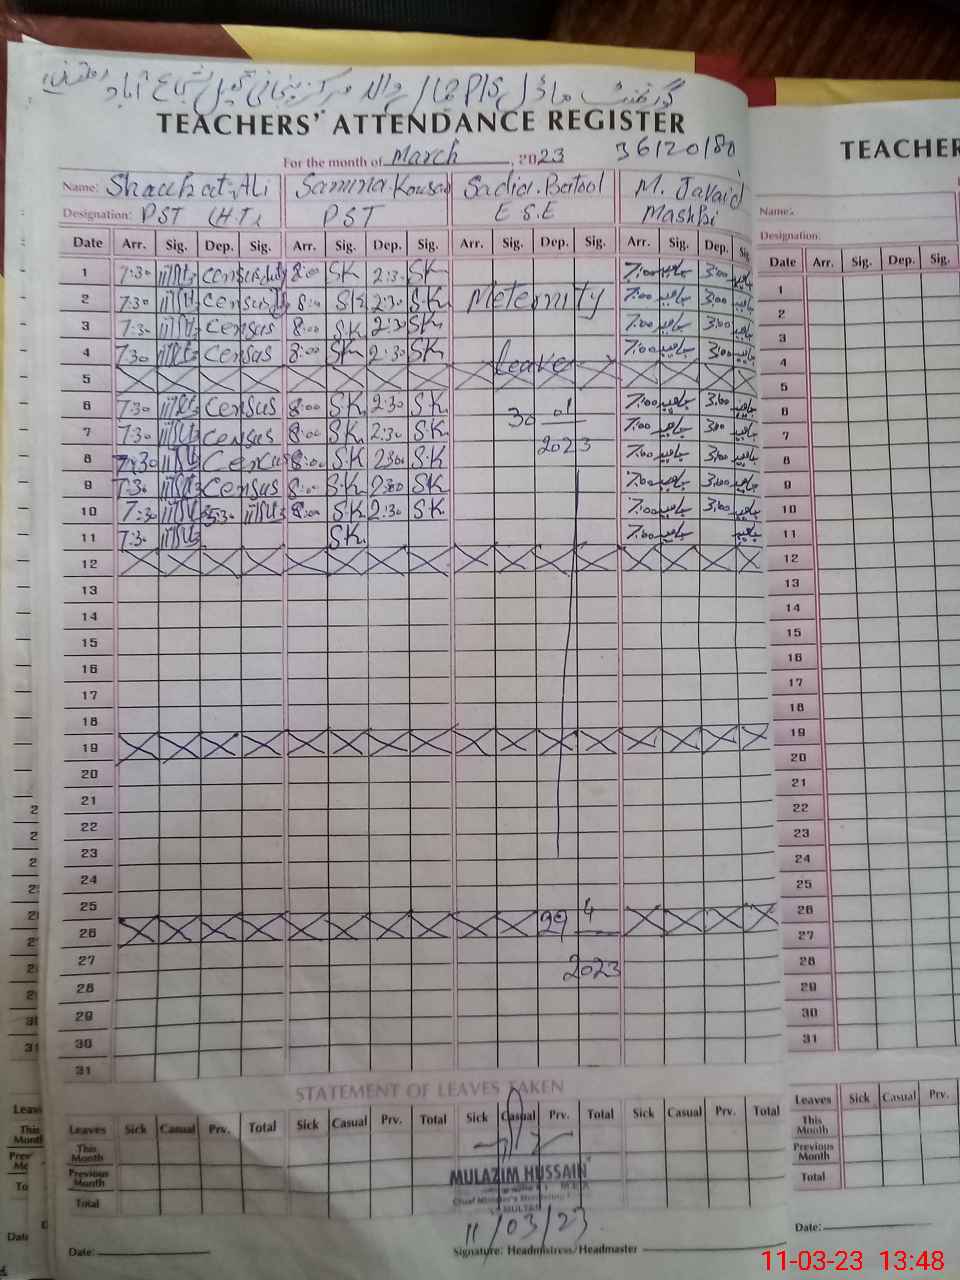 گورنمنٹ ماڈل P/S
TEACHERS' ATTENDANCE REGISTER
For the month of March, 2023 36120180
Name: Shaukat Ali Samina Kousar Sadia Batool M. Javaid
Designation: PST (H.T) PST E.S.E Mashki
Date Arr. Sig. Dep. Sig. Arr. Sig. Dep. Sig. Arr. Sig. Dep. Sig. Arr. Sig. Dep. Sig.
1 7:30 Census duty 8:00 SK 2:30 SK 7:00 جاوید 3:00 جاوید
2 7:30 Census 8:00 SK 2:30 SK Meternity 7:00 جاوید 3:00 جاوید
3 7:30 Census 8:00 SK 2:30 SK 7:00 جاوید 3:00 جاوید
4 7:30 Census 8:00 SK 2:30 SK leave 7:00 جاوید 3:00 جاوید
5
6 7:30 Census 8:00 SK 2:30 SK 30 01 7:00 جاوید 3:00 جاوید
7 7:30 Census 8:00 SK 2:30 SK 2023 7:00 جاوید 3:00 جاوید
8 7:30 Census 8:00 SK 2:30 SK 7:00 جاوید 3:00 جاوید
9 7:30 Census 8:00 SK 2:30 SK 7:00 جاوید 3:00 جاوید
10 7:30 8:00 SK 2:30 SK 7:00 جاوید 3:00 جاوید
11 7:30 SK 7:00 جاوید جاوید
12
13
14
15
16
17
18
19
20
21
22
23
24
25
26 29 4
27 2023
28
29
30
31
STATEMENT OF LEAVES TAKEN
Leaves Sick Casual Prv. Total Sick Casual Prv. Total Sick Casual Prv. Total Sick Casual Prv. Total
This Month
Previous Month
Total
MULAZIM HUSSAIN
M.E.A
Chief Minister's Monitoring
MULTAN
11/03/23
Date: Signature: Headmistress/Headmaster
TEACHER
Name:
Designation:
Date Arr. Sig. Dep. Sig.
1
2
3
4
5
6
7
8
9
10
11
12
13
14
15
16
17
18
19
20
21
22
23
24
25
26
27
28
29
30
31
Leaves Sick Casual Prv.
This Month
Previous Month
Total
Date:
11-03-23 13:48